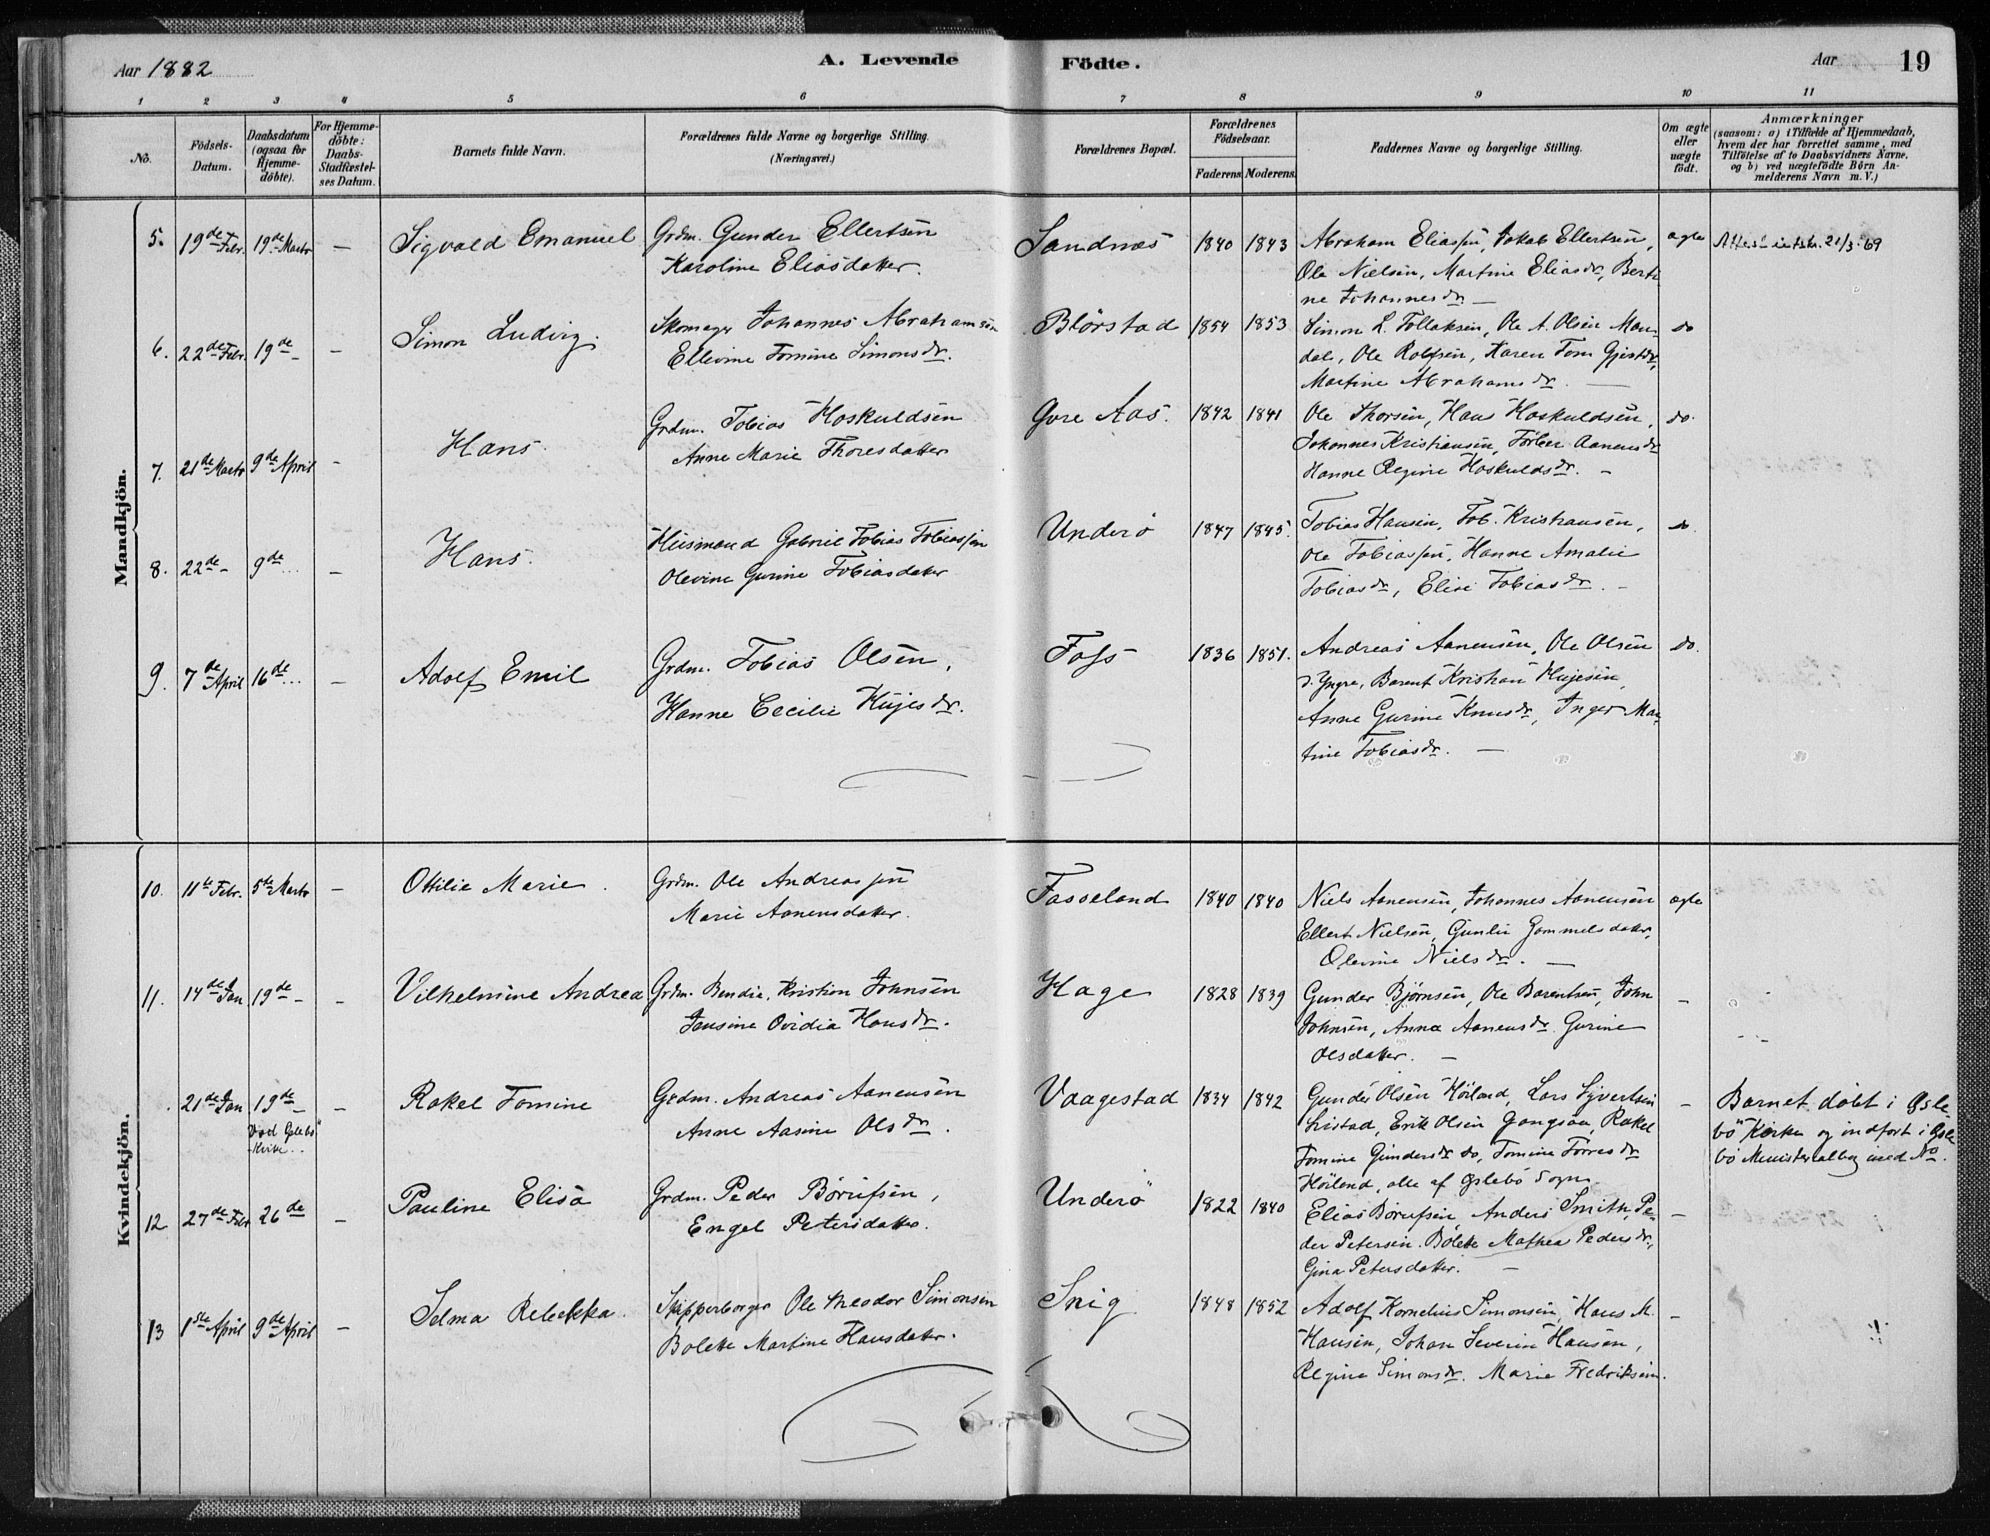 Aar 1882
A. Levende Födte.
Aar
19
1 2 3 4 5 6 7 8 9 10 11
No.
Födsels-Datum.
Daabsdatum (ogsaa for Hjemme-döbte).
For Hjemme-döbte: Daabs-Stadfæstel-ses Datum.
Barnets fulde Navn.
Forældrenes fulde Navne og borgerlige Stilling. (Næringsvei.)
Forældrenes Bopæl.
Forældrenes Födselsaar.
Faderens Moderens
Faddernes Navne og borgerlige Stilling.
Om ægte eller uægte födt.
Anmærkninger
(saasom: a) i Tilfælde af Hjemmedaab,
hvem der har forrettet samme, med
Tilföielse af to Daabsvidners Navne,
og b) ved uægtefödte Börn An-
melderens Navn m. V.)
Mandkjön.
5. 19de Febr. 19de Marts — Sigvald Emanuel Grdm. Gunder Ellertsen Sandnæs 1840 1843 Abraham Eliassen, Jakob Ellertsen, ægte 21/3 69
Karoline Eliasdatter. Ole Nielsen, Martine Eliasdr, Berti
ne Johannesdr —
6. 22de Febr. 19de — Simon Ludvig. Skomager Johannes Abrahamsen Blørstad 1854 1853 Simon L. Tollaksen, Ole A. Olsen Man- do
Ellevine Tomine Simonsdr. dal, Ole Rolfsen, Karen Tom Gjestdr,
Martine Abrahamsdr. —
7. 21de Marts 9de April - Hans. Grdm. Tobias Hoskuldsen Øvre Aas. 1842 1841 Ole Thorsen, Hans Hoskuldsen, do.
Anne Marie Thoresdatter Johannes Kristiansen, Aanensdr
Hanne Regine Hoskuldsdr. -
8. 22de - 9de ... — Hans. Husmand Gabriel Tobias Tobiassen Underö 1847 1845. Tobias Hansen, Tob. Kristiansen, do
Olevine Gurine Tobiasdatter Ole Tobiassen, Hanne Amalie
Tobiasdr, Elise Tobiasdr. -
9. 7de April 16de ... — Adolf Emil Grdm. Tobias Olsen, Foss 1836 1851. Andreas Aanensen, Ole Olsen do.
Hanne Cecilie Hujesdr. d. Yngre, Barent Kristian Hujesen,
Anne Gurine Knusdr, Inger Mar-
tine Tobiasdr. —
Kvindekjön.
10. 11te Febr. 5te Marts — Ottilie Marie. Grdm. Ole Andreassen Fasseland 1840 1840 Niels Aanensen, Johannes Aanensen ægte
Marie Aanensdatter. Ellert Nielsen, Gunlie Gommelsdatter,
Olevine Nielsdr. —
11. 14de Jan 19de - - Vilhelmine Andrea Grdm. Bendix Kristian Johnsen Hage 1828 1839 Gunder Bjørnsen, Ole Barentsen, John —
Jensine Ovidia Hansdr. Johnsen, Anna Aanensdr. Gurine
Olsdatter. —
21de Jan 19de - - Rakel Tomine Grdm. Andreas Aanensen Vaagestad 1834 1842 Gunder Olsen Høiland, Lars Syvertsen — Barnet döbt i Øsle-
Ved Øslebö Kirke.. Anne Aasine Olsdr. Lristad, Erik Olsen Rakel bö Kirke og indført i Øsle
Tomine Gundersdr do, Tomine Torresdr bö Ministerialbog med No.
Høiland, alle af Øslebö Sogn.
12 27de Febr 26de — Pauline Elisa Grdm. Peder Börufsen, Underö 1822 1840 Elias Börufsen, Anders Smith, Pe- —
Engel Petersdatter. der Petersen. Bolette Mathea Pedersdr,
Gina Petersdatter. —
13 1ste April 9de April — Selma Rebekka. Skipperborger Ole Theodor Simonsen Snig 1848 1852 Adolf Kornelius Simonsen, Hans M. —
Bolette Martine Hansdatter. Hansen, Johan Severin Hansen,
Regine Simonsdr. Marie Fredriksen.